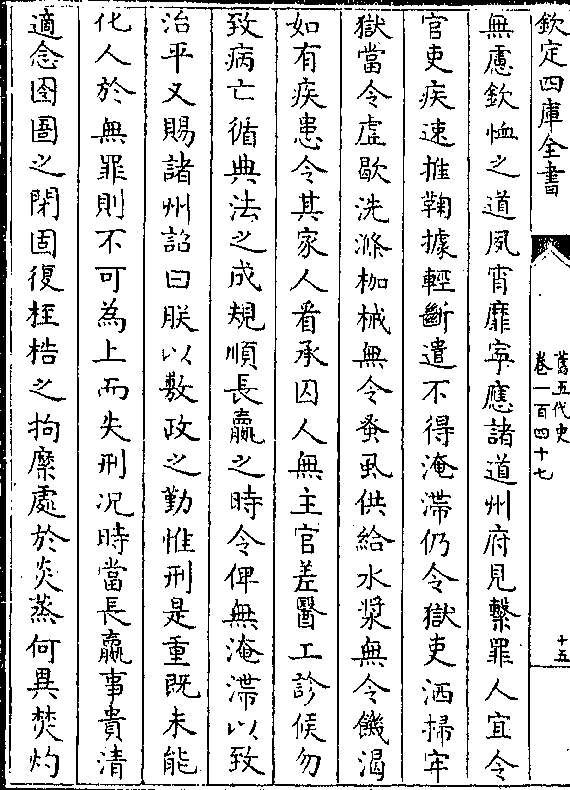 欽定四庫全書
舊五代史
卷一百四十七
十五
無慮欽恤之道夙宵靡寧應諸道州府見繫罪人宜令
官吏疾速推鞫據輕斷遣不得淹滯仍令獄吏洒掃牢
獄當令虛歇洗滌枷械無令蚤虱供給水漿無令饑渴
如有疾患令其家人看承囚人無主官差醫工診候勿
致病亡循典法之成規順長贏之時令俾無淹滯以致
治平又賜諸州詔曰朕以敷政之勤惟刑是重既未能
化人於無罪則不可為上而失刑况時當長贏事貴清
適念囹圄之閉固復桎梏之拘縻處於炎蒸何異焚灼